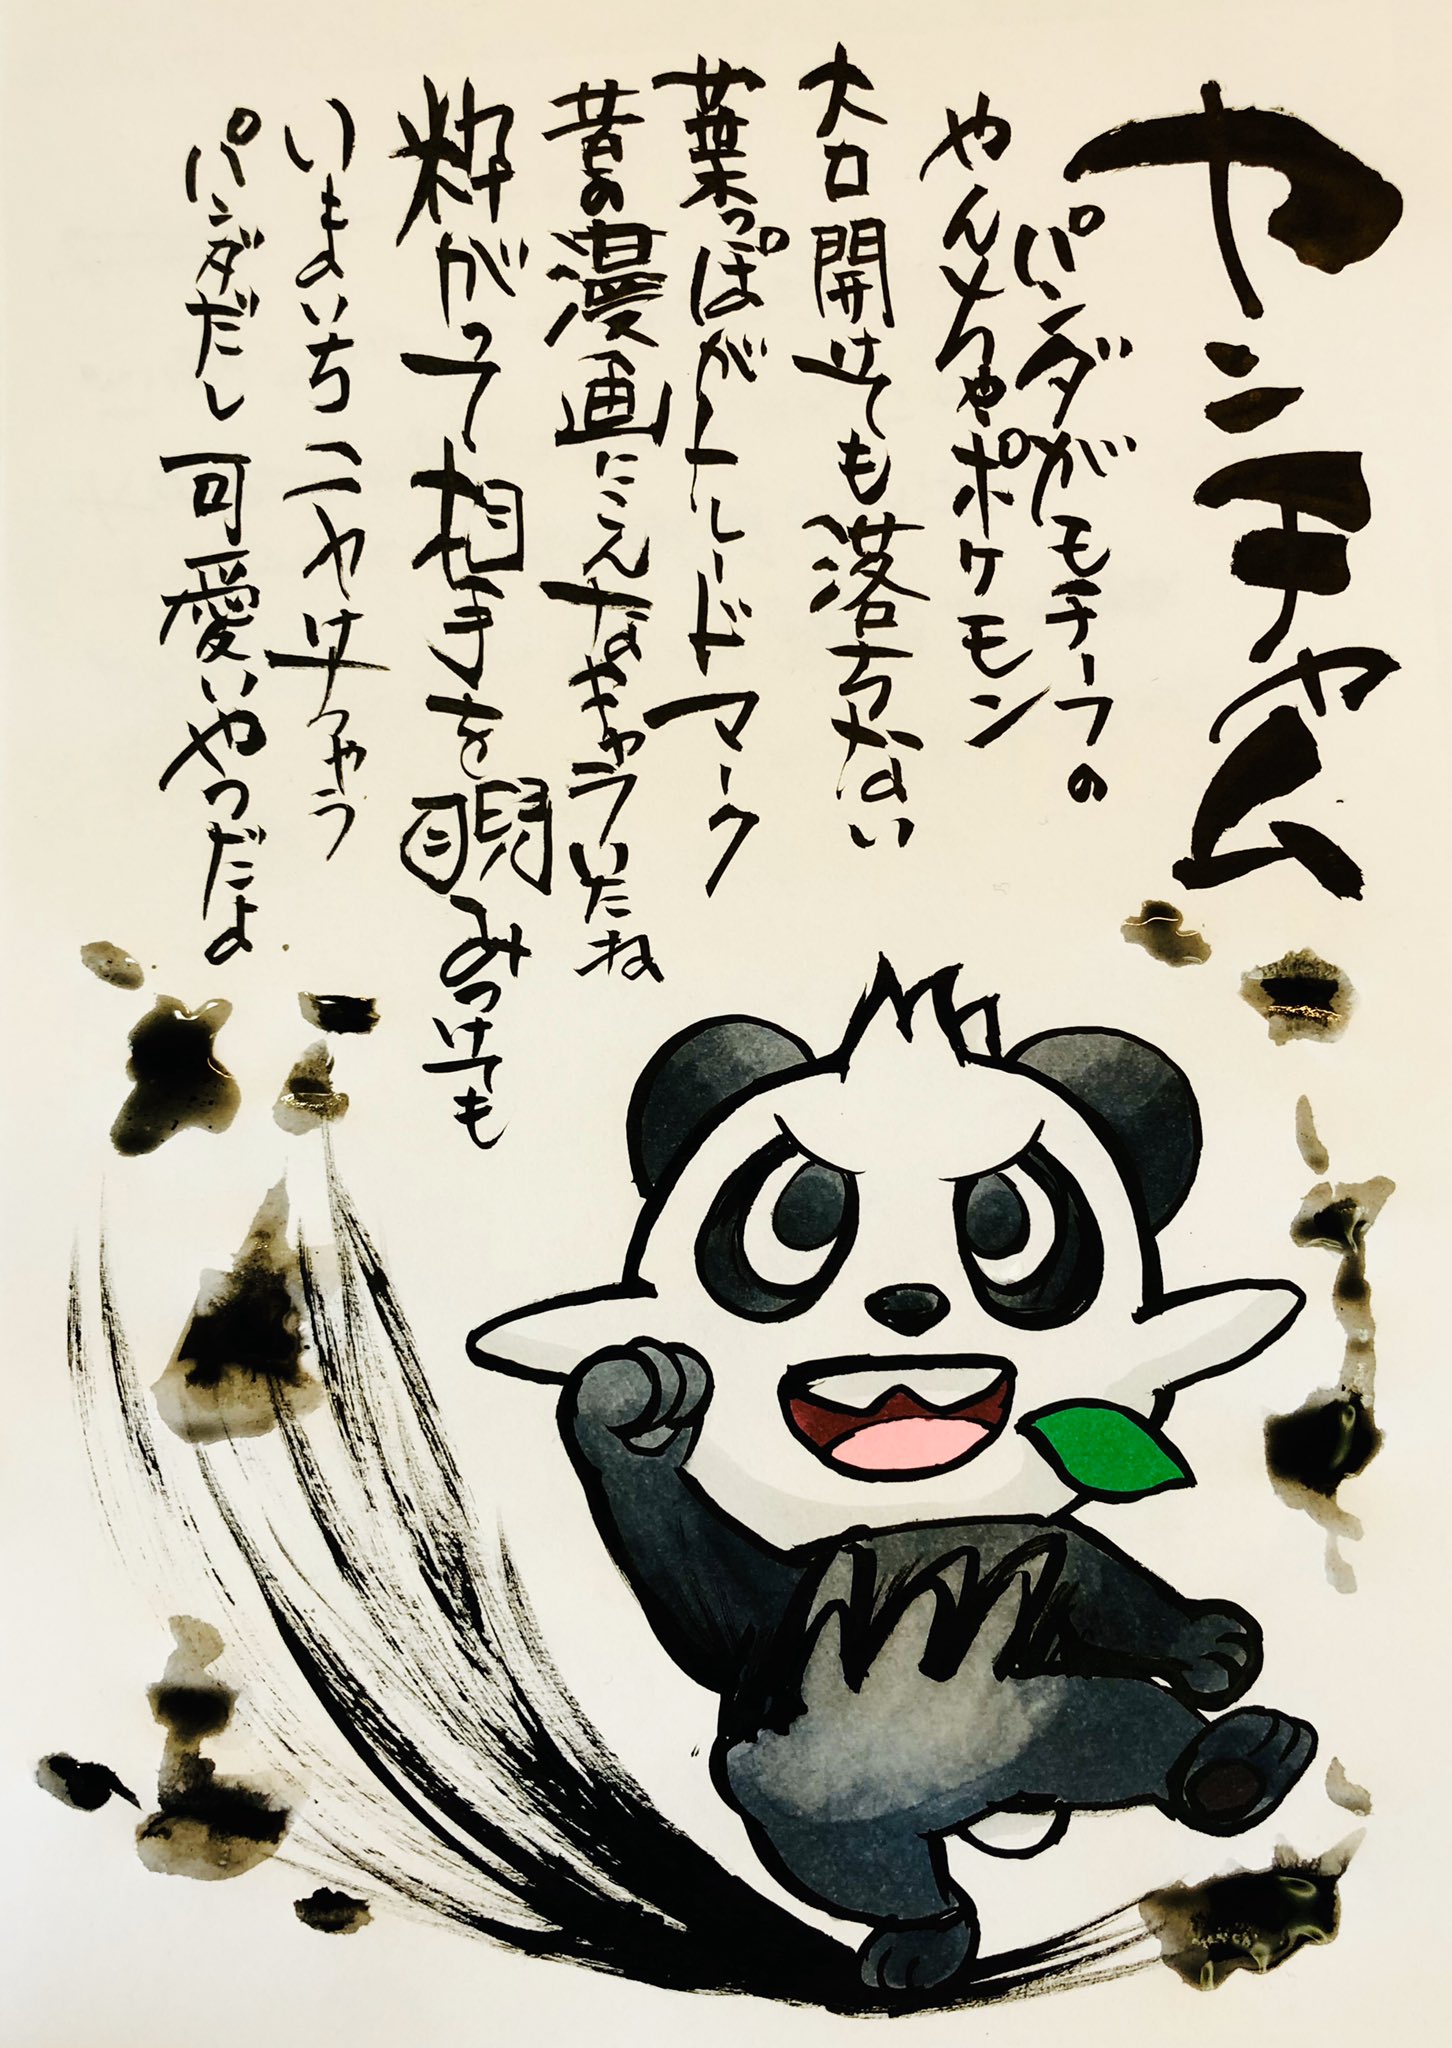 ヤンチャム
パンダがモチーフの
やんちゃポケモン
大口開けても落ちない
葉っぱがトレードマーク
昔の漫画にこんなキャラいたね
粋がって相手を睨みつけても
いまいちニヤけちゃう
パンダだし可愛いやつだよ